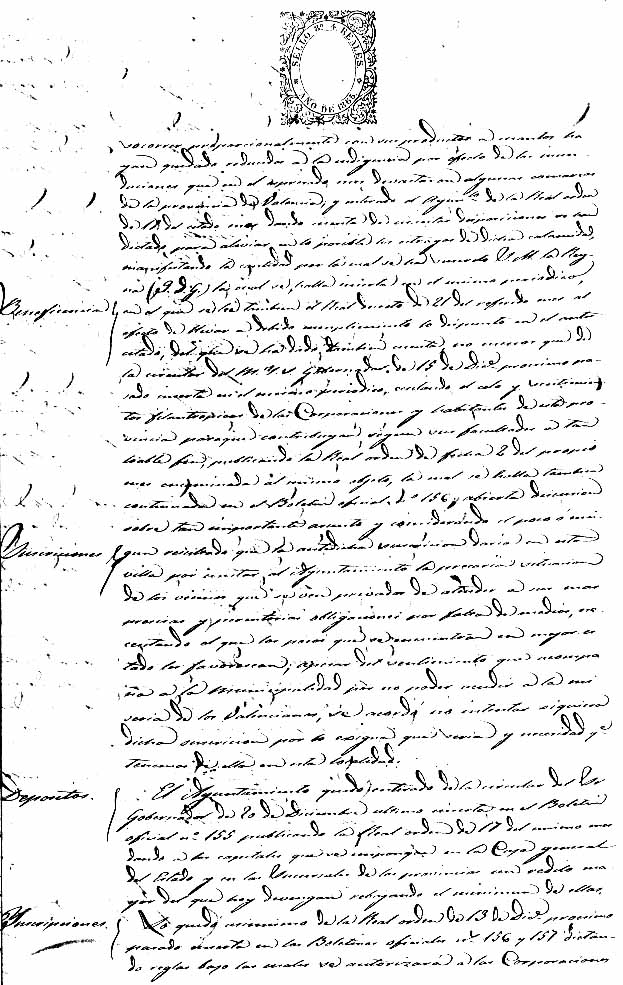 SELLO 4º REALES
AÑO DE 1865
socorrer proporcionalmente con sus productos a cuantos ha
yan quedado reducidos a la indigencia por efecto de las inun-
daciones que en el espresado mes devastaron algunas comarcas
de la provincia de Valencia, y enterado el Ayunº de la Real orden
de 18 del citado mes dando cuenta de cuantas disposiciones se han
dictado para aliviar en lo posible los estragos de dicha calamidad,
manifestando la cantidad por la cual se ha suscrito S. M. la Rey-
na (q. D. G.) la cual se halla inserta en el mismo periodico,
Beneficencia
en el que se lee tambien el Real decreto de 21 del referido mes al
efecto de llevar a debido cumplimiento lo dispuesto en el ante
citado, del que se ha dado tambien cuenta no menos que de
la circular del M. Y. S. Gobernador de 15 de Dice proximo pa-
sado inserta en el mismo periodico, escitando el celo y sentimien
tos filantropicos de las Corporaciones y habitantes de esta pro-
vincia para que contribuyan segun sus facultades a tan
loable fin, publicando la Real orden de fecha 2 del propio
mes encaminada al mismo objeto, la cual se halla tambien
continuada en el Boletin oficial nº 156 y abierta discusion
sobre tan importante asunto y considerando el poco ó nin-
Suscripciones
gun resultado que la antedicha suscripcion daria en esta
villa por constar al Ayuntamiento la precaria situacion
de los vecinos que se ven privados de atender a sus mas
precisas y perentorias obligaciones por falta de medios, es-
ceptuando el que los pocos que se encuentran en mejor es
tado los favorezcan; apesar del sentimiento que acompa
ña a la Municipalidad por no poder acudir a la mi
seria de los Valencianos, se acordó no intentar siquiera
dicha suscricion por lo exigua que seria y necesidad qe
tenemos de ella en esta localidad.
Depositos.
El Ayuntamiento quedó enterado de la circular del Sr
Gobernador de 20 de Diciembre ultimo inserta en el Boletin
oficial nº 155 publicando la Real orden de 17 del mismo mes
dando a los capitales que se impongan en la Caja general
del Estado y en las Sucursales de las provincias un redito ma
yor del que hoy devengan rebajando el minimum de ellos.
Ynscripciones.
Lo quedó asimismo de la Real orden de 13 de Dice proximo
pasado inserta en los Boletines oficiales nos 156 y 157 dictan-
do reglas bajo las cuales se autorizará a las Corporaciones